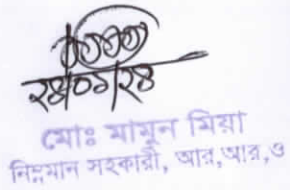 ২৪/০১/২৪
মোঃ মামুন মিয়া
নিম্নমান সহকারী, আর,আর,ও